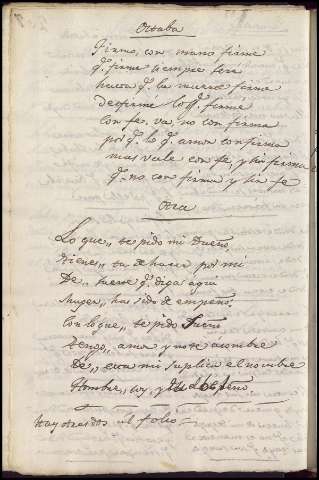 Octaba
Firmo, con mano firme
q.e firme siempre sera
hasta q.e la muerte firme
desfirme lo q.e firme
con fe. va, no con firma
por q.e lo q.e amor confirma
mas vale con fe, y sin firma
q.e no con firma y sin fe
Otra
Lo que,, te pido mi Dueño,
tienes,, ha de hacer por mi
De,, suerte q.e diga aqui
Muger,, has sido de empeño,
Con lo que,, te pido Dueño
tengo,, amor y no te asombre
De,, esta mi suplica el nombre
Hombre,, soy, y
Hay otras dos al folio